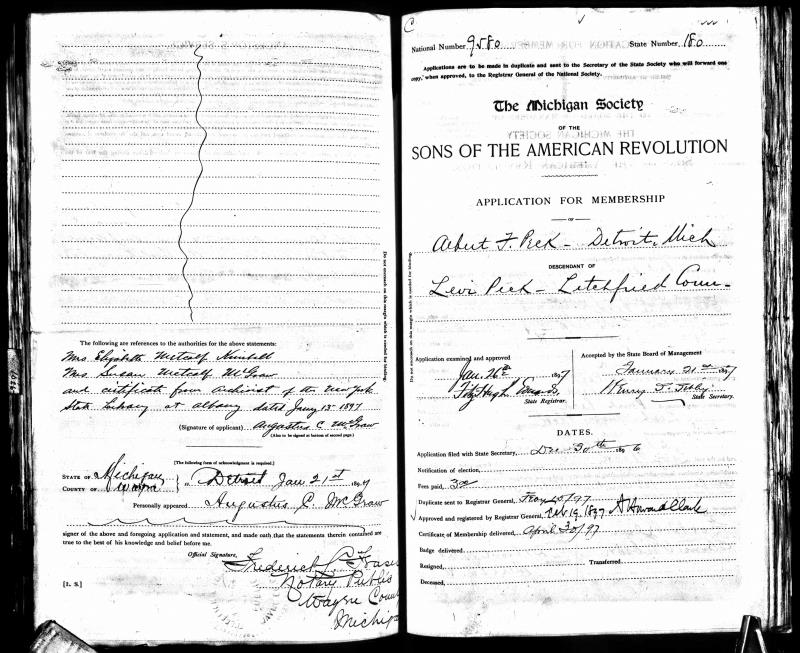 The following are references to the authorities for the above statements:
Mrs. Elizabeth Metcalf Kimball
Mrs Susan Metcalf McGraw
and certificate from Archivist of the New York
State Library at Albany dated Jany 13" 1897
(Signature of applicant) Augustus C McGraw
(Also to be signed at bottom of second page.)
[The following form of acknowledgment is required.]
STATE OF Michigan
COUNTY OF Wayne
Detroit Jan 21st 1897
Personally appeared Augustus C. McGraw
signer of the above and foregoing application and statement, and made oath that the statements therein contained are
true to the best of his knowledge and belief before me.
Official Signature,
Frederick
Notary Public
Wayne County
Michigan
[L. S.]
Do not encroach on this margin which is needed for binding.
C
National Number 9580 State Number 180
Applications are to be made in duplicate and sent to the Secretary of the State Society who will forward one
copy, when approved, to the Registrar General of the National Society.
The Michigan Society
OF THE
SONS OF THE AMERICAN REVOLUTION
APPLICATION FOR MEMBERSHIP
OF
Albert F. Peck - Detroit, Mich
DESCENDANT OF
Levi Peck - Litchfield Conn-
Do not encroach on this margin which is needed for binding.
Application examined and approved
Jan. 26th 1897
State Registrar.
Accepted by the State Board of Management
January 21st 1897
Henry
State Secretary.
DATES.
Application filed with State Secretary, Dec 30th 1896
Notification of election,
Fees paid,
Duplicate sent to Registrar General,
Approved and registered by Registrar General, Feb 19. 1897 A Howard Clark
Certificate of Membership delivered, April 30/97
Badge delivered
Resigned, Transferred
Deceased,